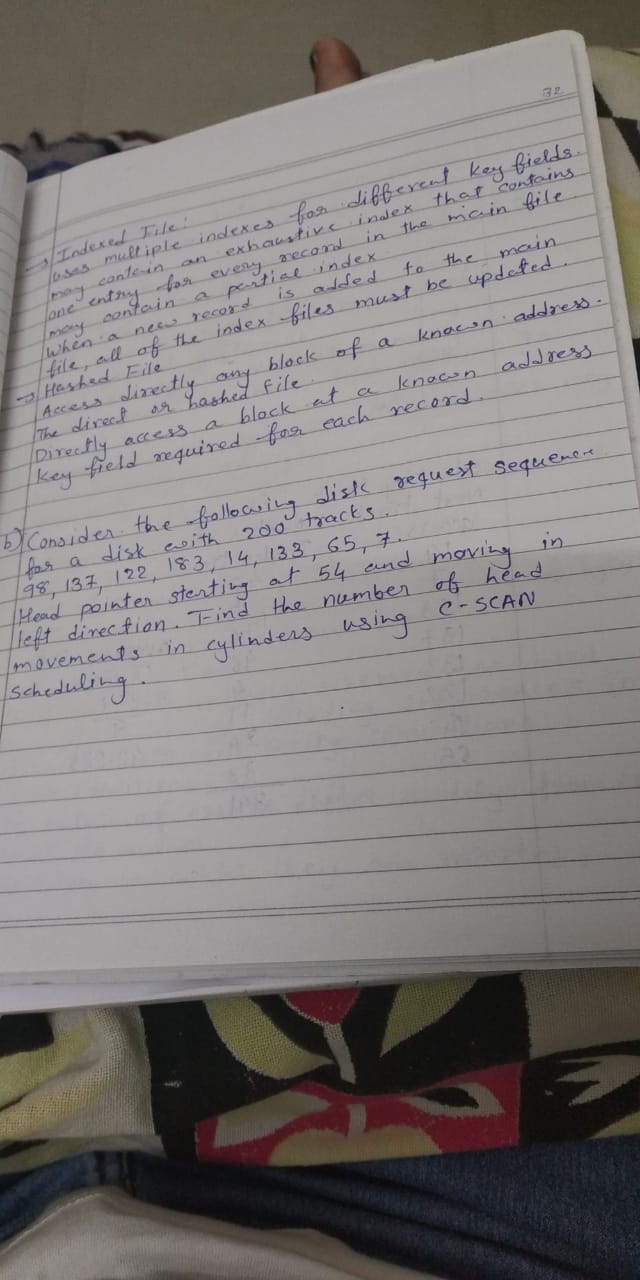 32
→ Indexed File:
uses multiple indexes for different key fields.
may contain an exhaustive index that contains
one entry for every record in the main file
may contain a partial index
When a new record is added to the main
file, all of the index files must be updated.
→ Hashed File
Access directly any block of a known address.
The direct or hashed file.
Directly access a block at a known address
key field required for each record.
b) Consider the following disk request sequence
for a disk with 200 tracks.
98, 137, 122, 183, 14, 133, 65, 7.
Head pointer starting at 54 and moving in
left direction. Find the number of head
movements in cylinders using C-SCAN
scheduling.